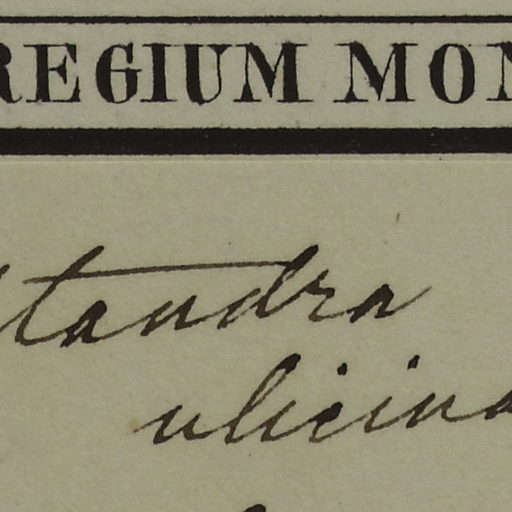 REGIUM MON
tandra
ulicina